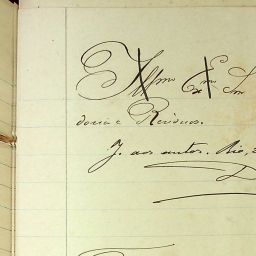 Illmo Exmo Snr
doria e Residuos.
J. aos autos. Rio, 3